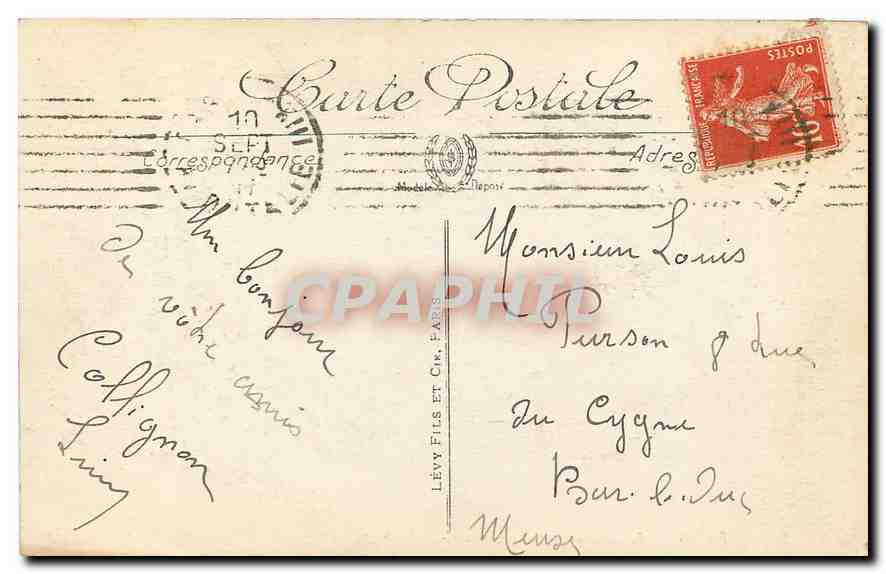 Carte Postale
10
SEPT
Correspondance
Adres
Modèle Déposé
REPUBLIQUE FRANCAISE
POSTES
10
Un bonjour
de votre amis
Collignon
LÉVY FILS ET CIE, PARIS
CPAPHIL
Monsieur Louis
Purson 8 Rue
du Cygne
Bar-le-Duc
Meuse